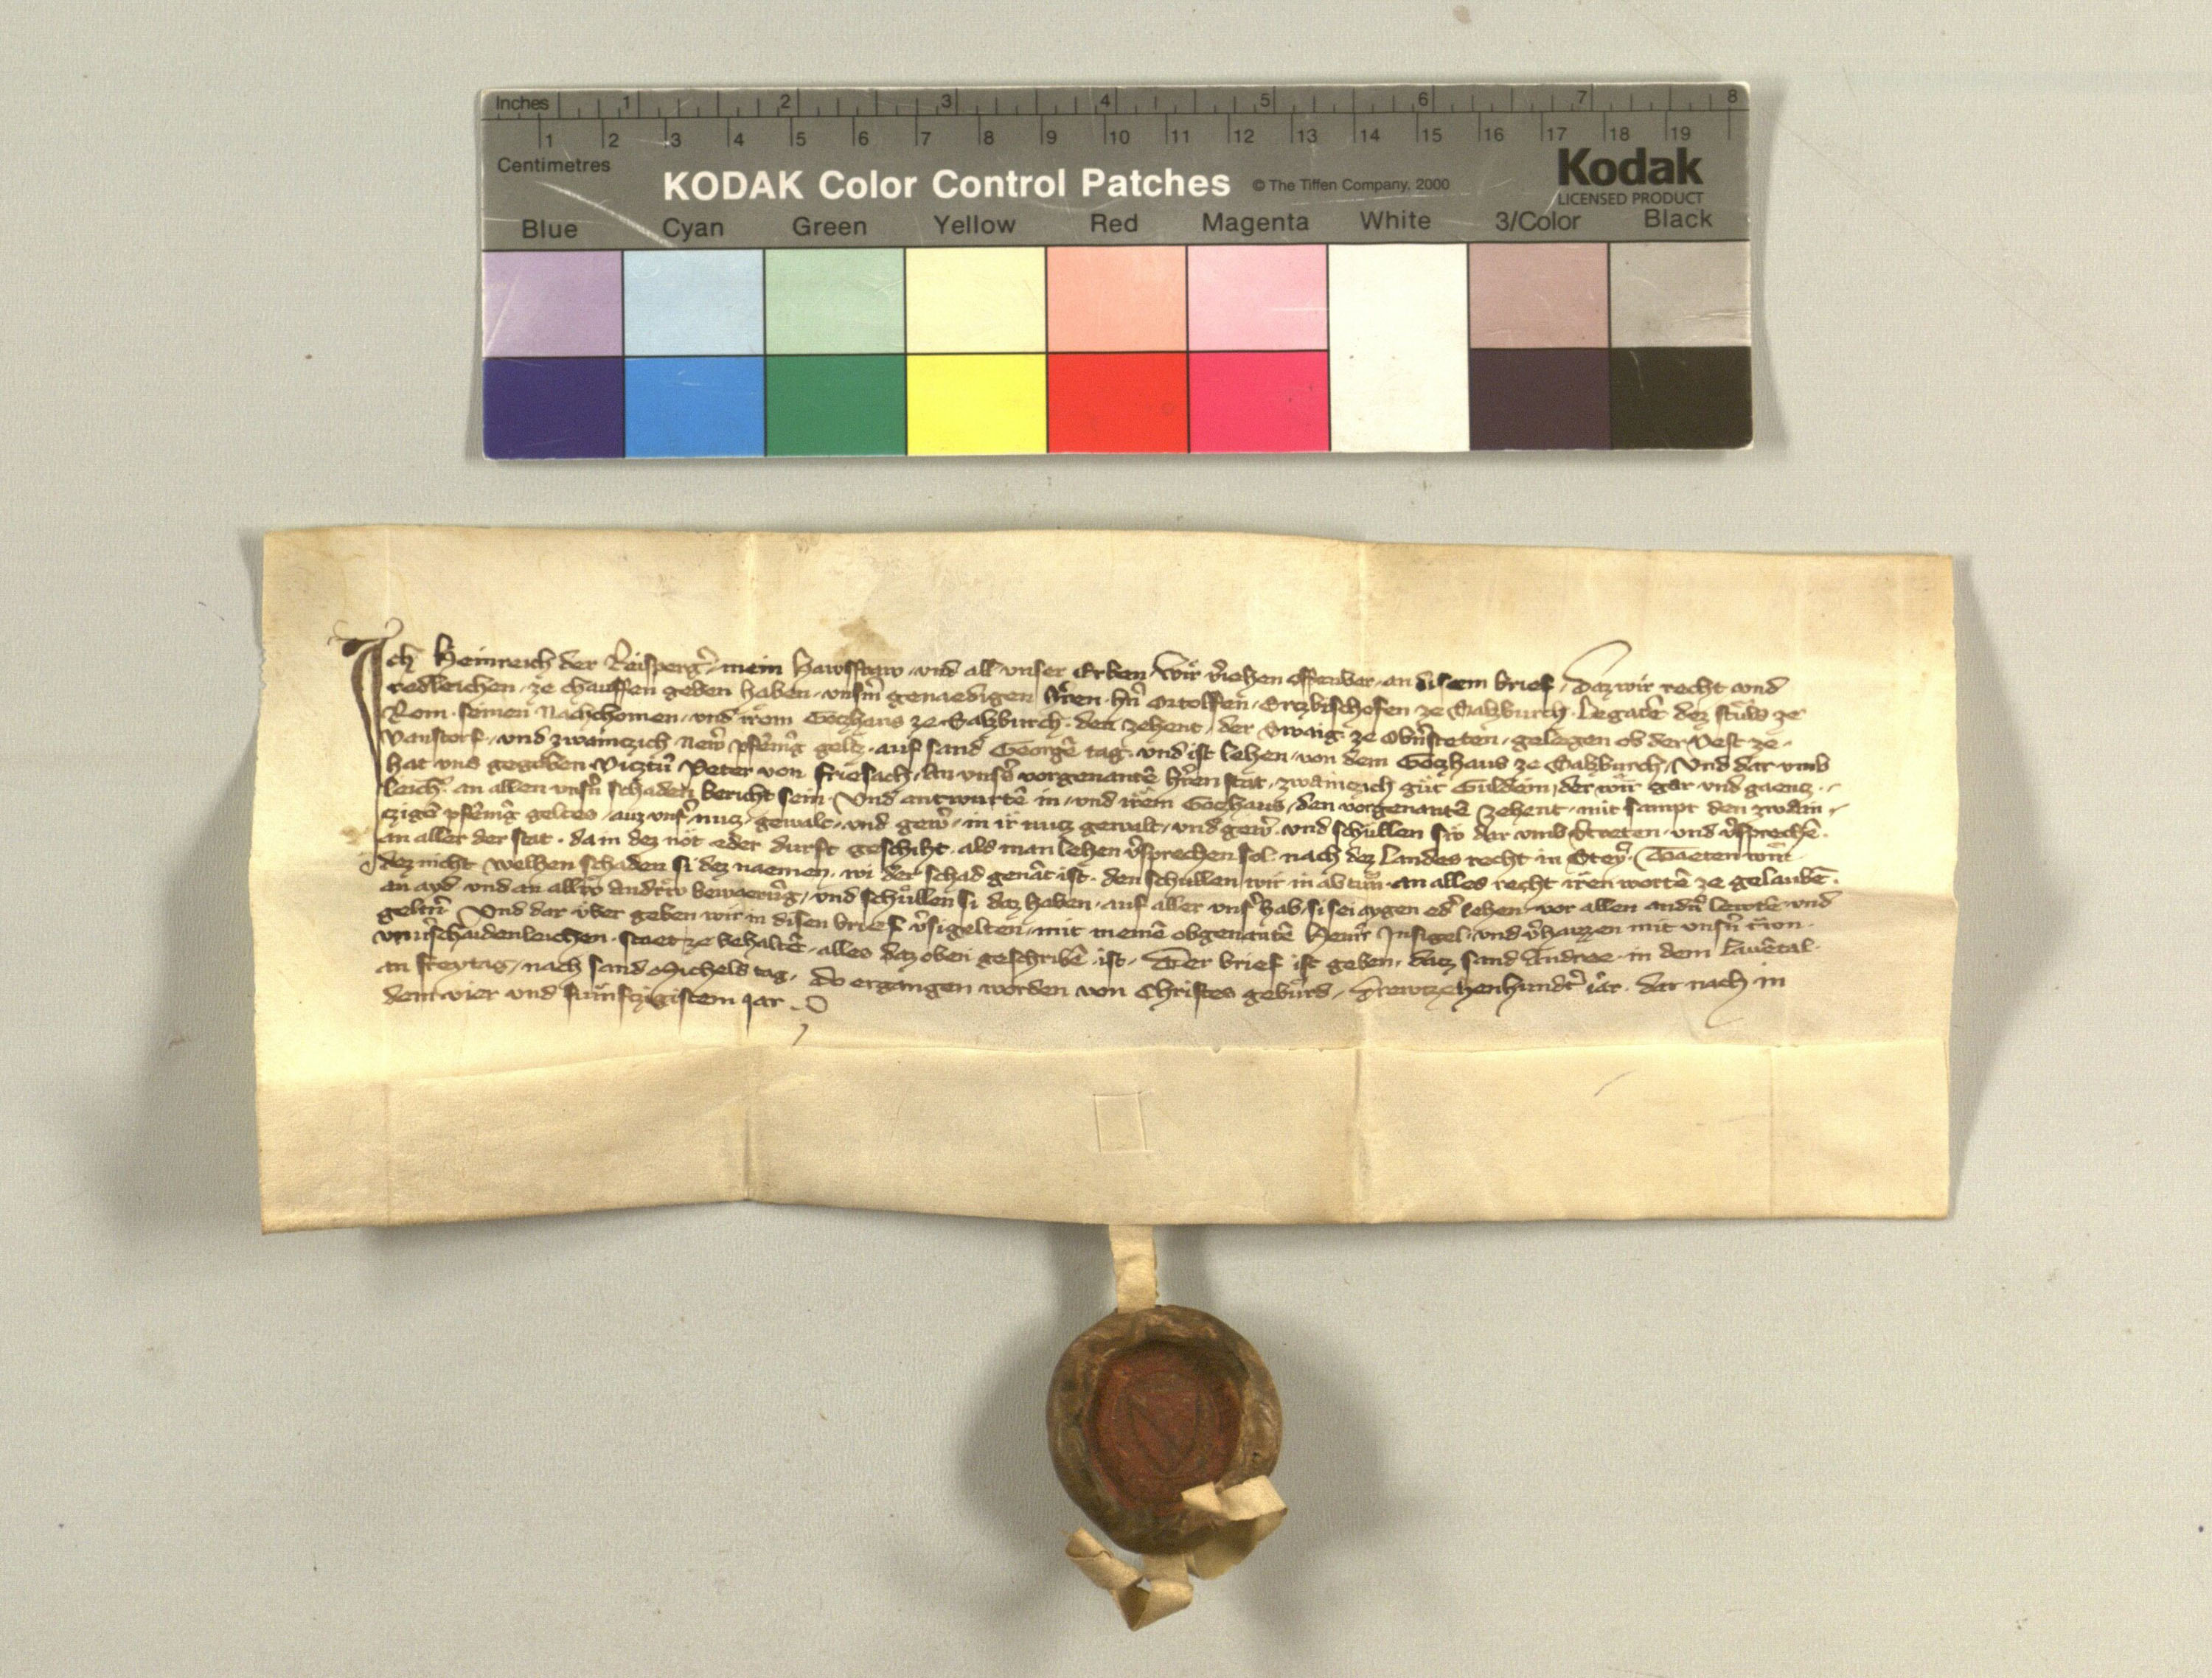 Inches 1 2 3 4 5 6 7 8
1 2 3 4 5 6 7 8 9 10 11 12 13 14 15 16 17 18 19
Centimetres
KODAK Color Control Patches © The Tiffen Company, 2000 Kodak
LICENSED PRODUCT
Blue Cyan Green Yellow Red Magenta White 3/Color Black
Ich Heinreich der mein Hawsfraw und all unser Erben Wir v̾iehen offenber an disem brief, daz wir recht und
redleichen ze chauffen geben haben unsm̾ genaedigen h̾ren hn̾ Ortolffen Ertzbischofen ze Saltzburch Legatē dez stůls ze
Rom seinen Nachchomen und irem Gotzhaus ze Saltzburch den zehent der Swaig ze gelegen ob der Vest ze
Vanstorf und zwaintzich new̾ pfēnīg geltz auf sand Georgē tag und ist lehen von dem Gotzhaus ze Saltzburch Und dar umb
hat uns gegeben Vitztům Peter von Friesach an uns̾s vorgenantē h̾ren stat zwaintzich gůt Guldein der wir gar und gaentz
leich an allen unsn̾ schaden bericht sein Und antwurtē in und irem Gotzhaus den vorgenantē zehent mit sampt den zwain
tzigē pfēnīg geltes auz uns̾ nutz gewalt und gew̾ in ir nutz gewalt und gew̾ und schullen siv dar umb v̾treten und v̾sprechē
an aller der stat da in dez nöt oder durft geschiht als man lehen v̾sprechen sol nach dez Landes recht in Steyr̾ Taeten wir
dez nicht welhen schaden si dez naemen wi der schad genāt ist den schullen wir in ab tůn an alles recht iren wortē ze gelaubē
an ayd und an alliv andriv bewaerūg und schůllen si daz haben auf aller uns̾ hab si sei aygen ed̾ lehen vor allen andn̾ lewtē und
geltn̾ Und dar über geben wir in disen brief v̾sigelten mit meinē obgenantē Heinr̾ Insigel und v̾haizzen mit unsn̾ triwn
unv̾schaidenleichen staet ze behaltē alles daz oben geschribē ist Der brief ist geben datz sand Andree in dem Lavētal
an freytag nach sand Michels tag do ergangen worden von Christes gebůrd drewtzehenhundt̾ iar dar nach in
dem vier und fůnftzigistem jar